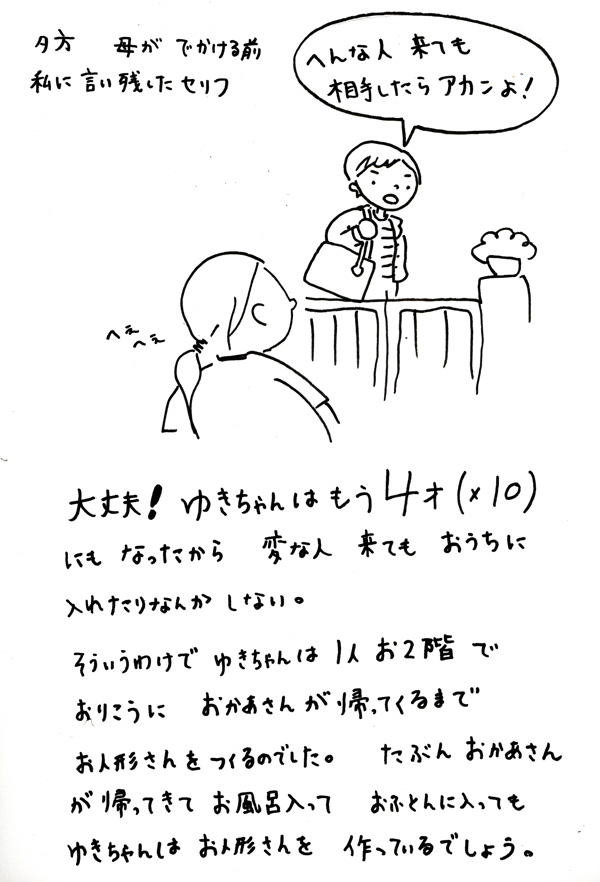 夕方 母が でかける前
私に言い残したセリフ
へんな人 来ても
相手したらアカンよ!
へぇ
へぇ
大丈夫! ゆきちゃんはもう4才(×10)
にも なったから 変な人 来ても おうちに
入れたりなんか しない。
そういうわけで ゆきちゃんは 1人 お2階で
おりこうに おかあさんが帰ってくるまで
お人形さんをつくるのでした。 たぶん おかあさん
が帰ってきて お風呂入って おふとんに入っても
ゆきちゃんは お人形さんを 作っているでしょう。